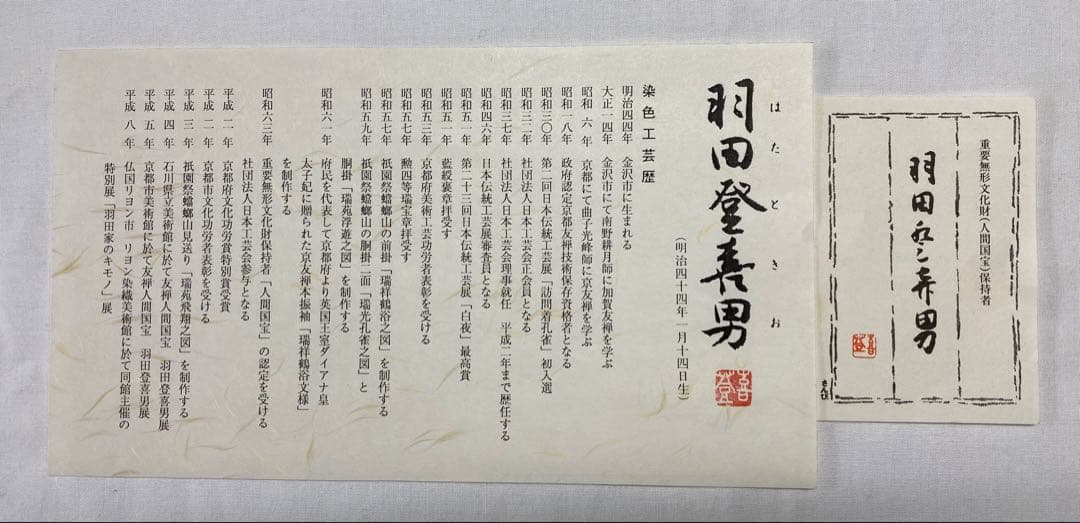 重要無形文化財(人間国宝)保持者
羽田登喜男
喜登
羽田登喜男
はたときお
(明治四十四年一月十四日生)
喜登
染色工芸歴
明治四四年 金沢市に生まれる
大正一四年 金沢市にて南野耕月師に加賀友禅を学ぶ
昭和 六 年 京都にて曲子光峰師に京友禅を学ぶ
昭和一八年 政府認定京都友禅技術保存資格者となる
昭和三〇年 第二回日本伝統工芸展「訪問着孔雀」初入選
昭和三二年 社団法人日本工芸会正会員となる
昭和三七年 社団法人日本工芸会理事就任 平成二年まで歴任する
昭和四六年 日本伝統工芸展審査員となる
昭和五一年 第二十三回日本伝統工芸展「白夜」最高賞
昭和五一年 藍綬褒章拝受す
昭和五三年 京都府美術工芸功労者表彰を受ける
昭和五七年 勲四等瑞宝章拝受す
昭和五七年 祇園祭蟷螂山の前掛「瑞祥鶴浴之図」を制作する
昭和五九年 祇園祭蟷螂山の胴掛二面「瑞光孔雀之図」と
胴掛「瑞苑浮遊之図」を制作する
昭和六一年 府民を代表して京都府より英国王室ダイアナ皇
太子妃に贈られた京友禅本振袖「瑞祥鶴浴文様」
を制作する
昭和六三年 重要無形文化財保持者「人間国宝」の認定を受ける
社団法人日本工芸会参与となる
平成 二 年 京都府文化功労賞特別賞受賞
平成 二 年 京都市文化功労者表彰を受ける
平成 三 年 祇園祭蟷螂山見送り「瑞苑飛翔之図」を制作する
平成 四 年 石川県立美術館に於て友禅人間国宝 羽田登喜男展
平成 五 年 京都市美術館に於て友禅人間国宝 羽田登喜男展
平成 八 年 仏国リヨン市 リヨン染織美術館に於て同館主催の
特別展「羽田家のキモノ」展